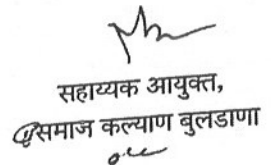 सहाय्यक आयुक्त,
समाज कल्याण बुलडाणा